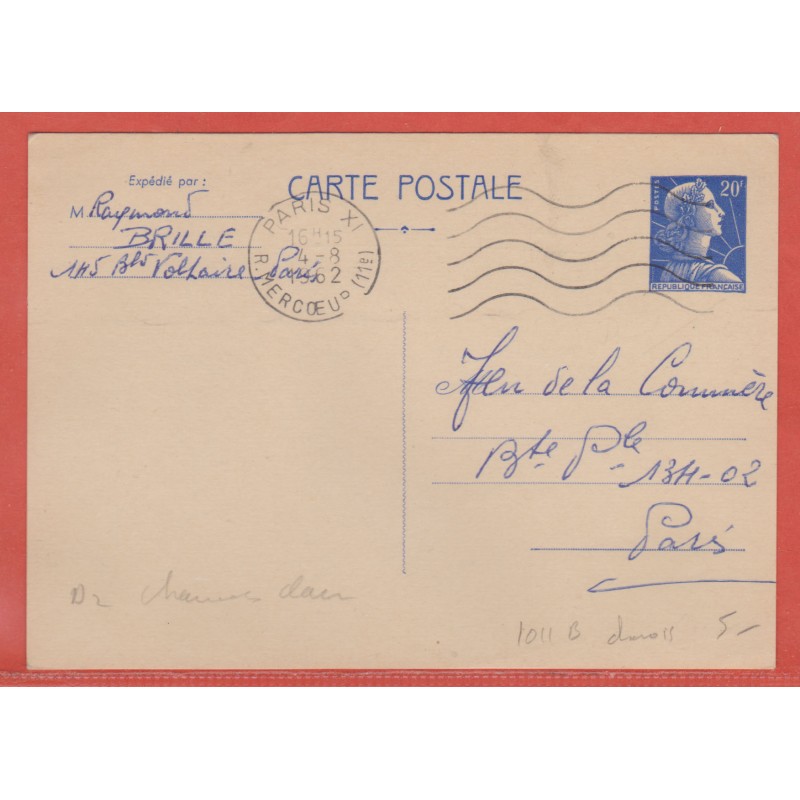 Expédié par :
CARTE POSTALE
M. Raymond
BRILLE
145 Bld Voltaire Paris
PARIS XI
16H15
4-8
1962
R. MERCOEUR (11e)
POSTES
20F
REPUBLIQUE FRANÇAISE
de la
Bte Ple 134-02
Paris
D2
1011 B 5-